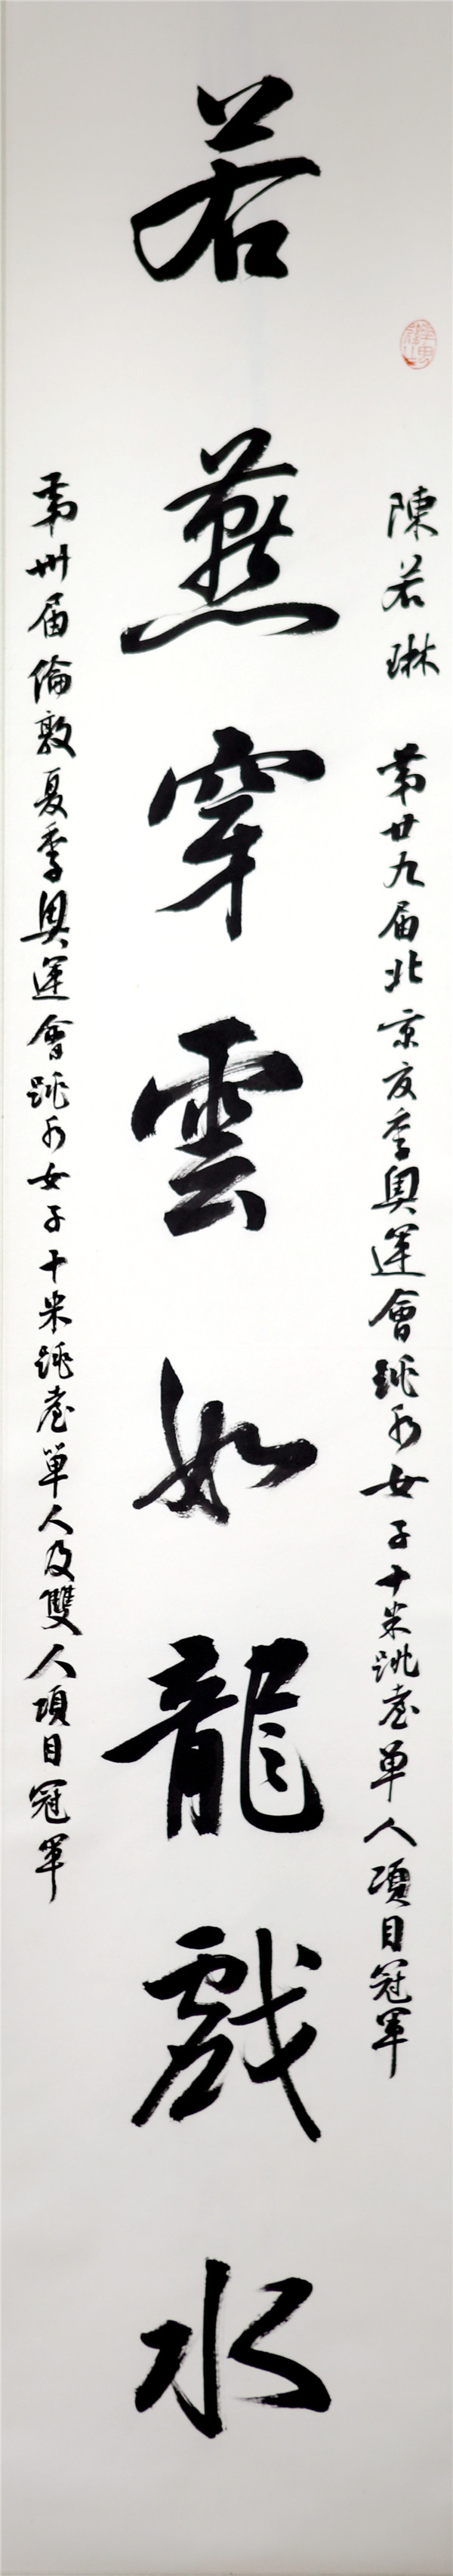 陳若琳 第廿九届北京夏季奥運會跳水女子十米跳臺单人項目冠軍
若燕穿雲如龍戲水
第卅届倫敦夏季奥運會跳水女子十米跳臺单人及雙人項目冠軍